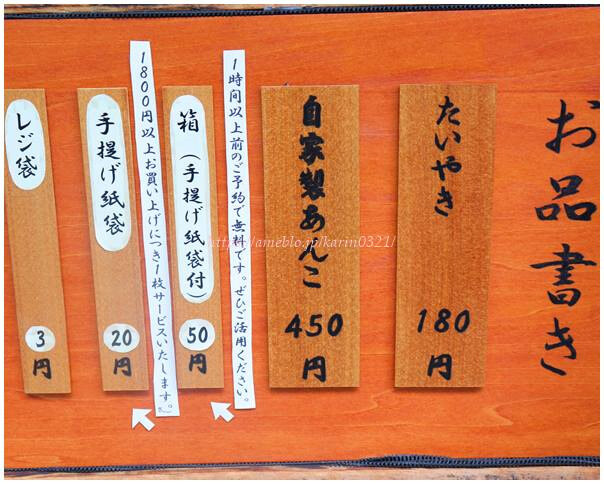 お品書き
たいやき
180
円
自家製あんこ
450
円
1時間以上前のご予約で無料です。ぜひご活用ください。
箱(手提げ紙袋付)
50
円
1800円以上お買い上げにつき1枚サービスいたします。
手提げ紙袋
20
円
レジ袋
3
円
http://ameblo.jp/karin0321/